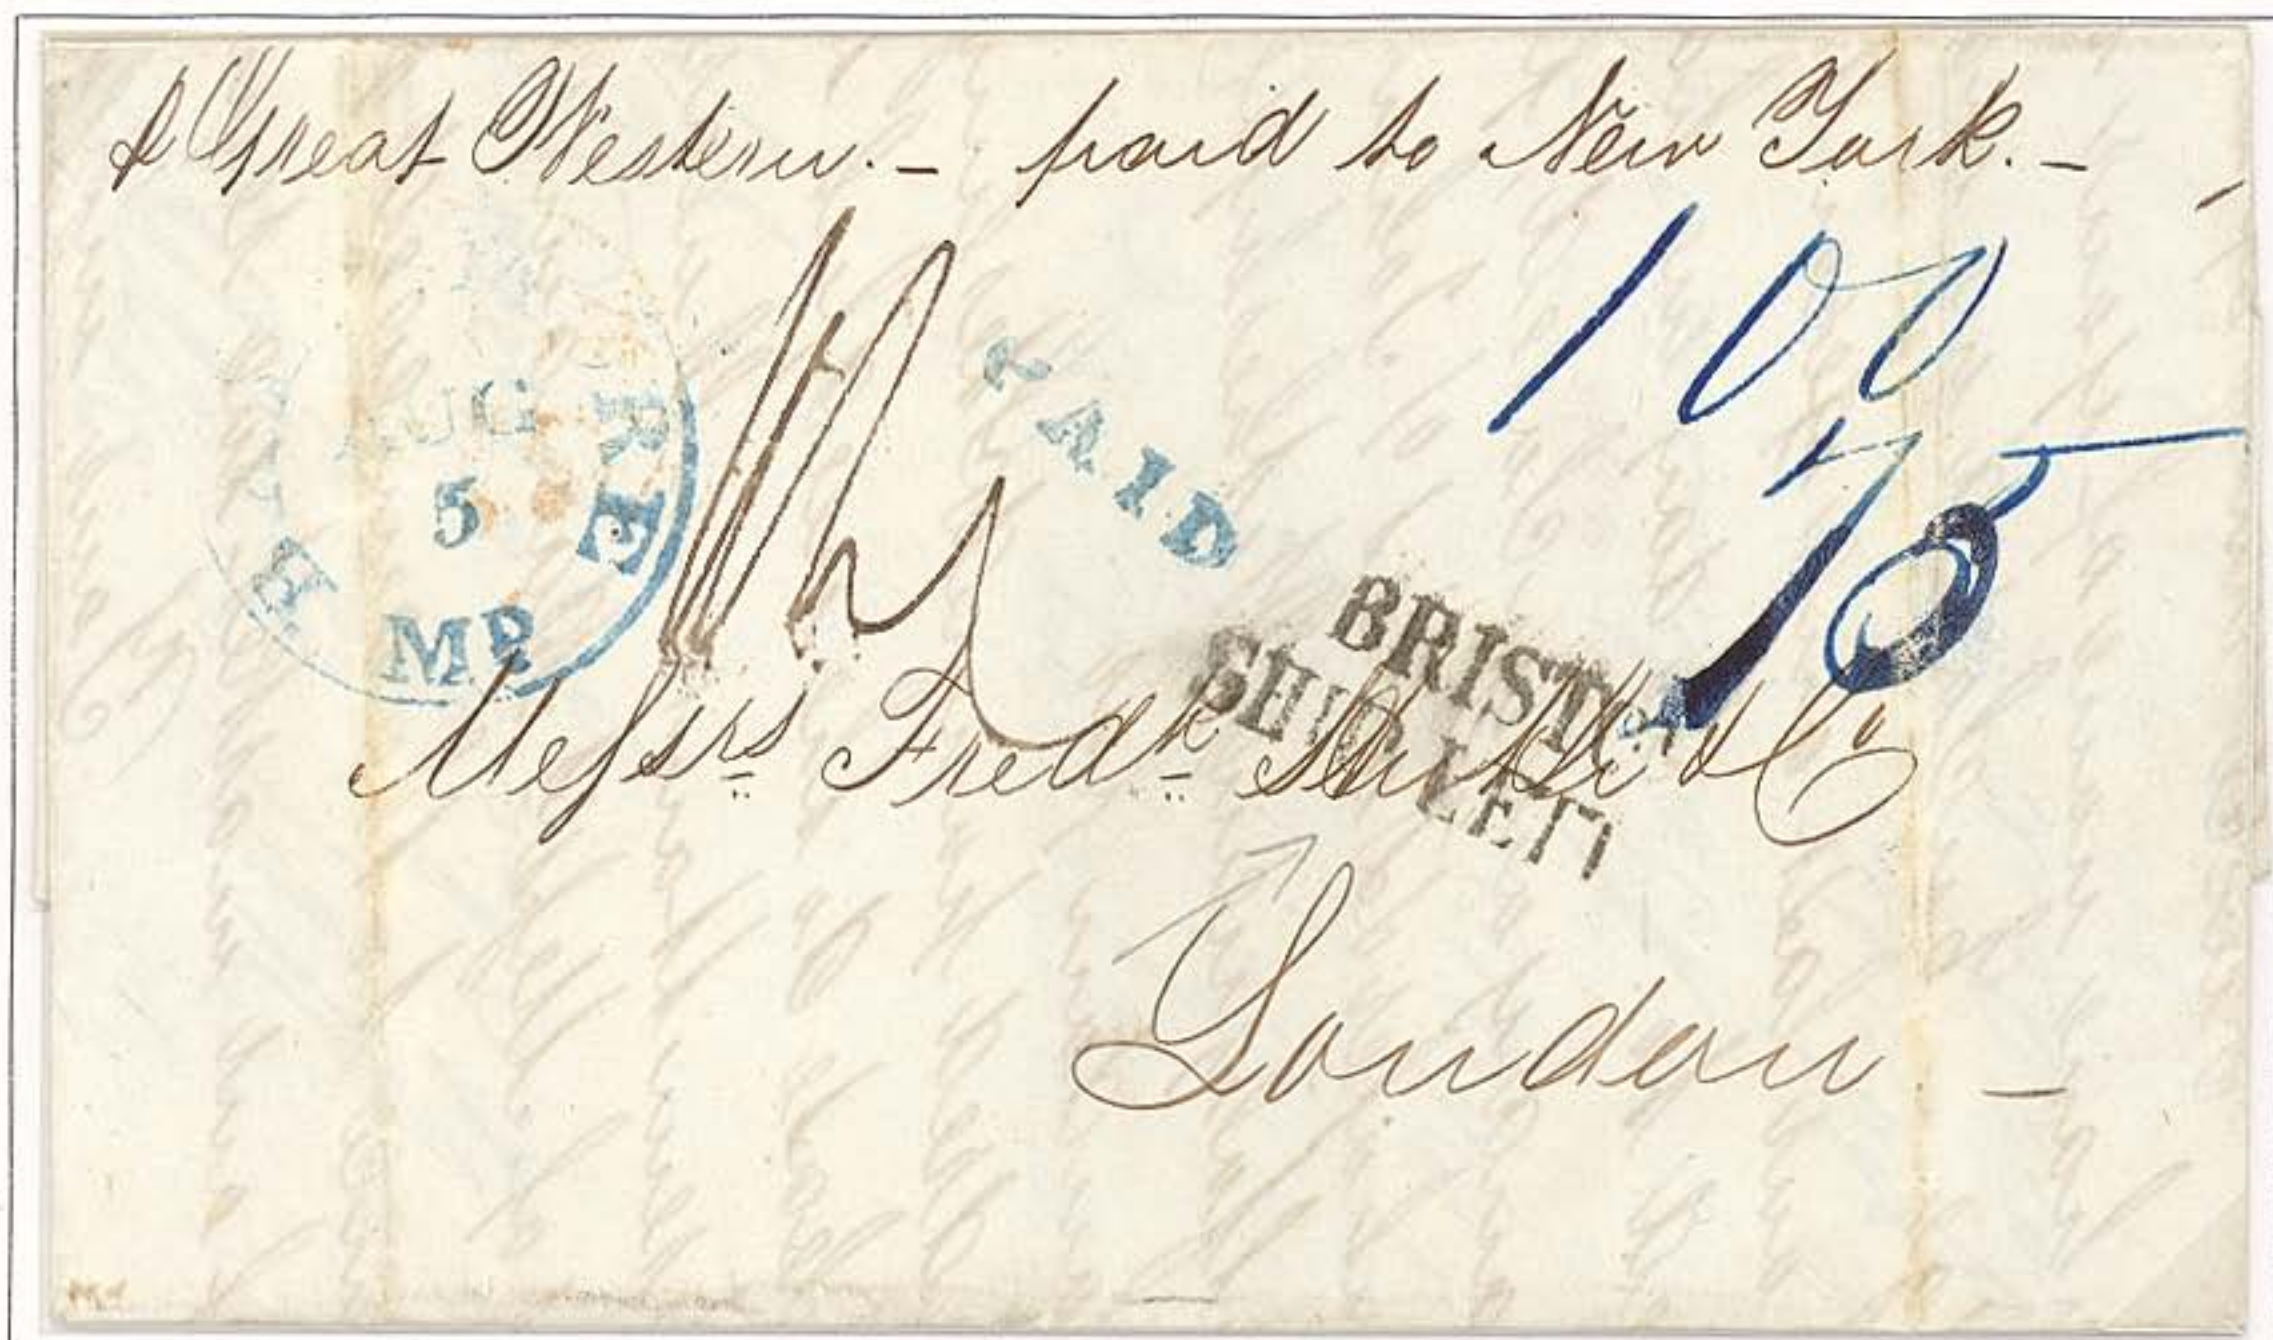 ℘ Great Western. — paid to New York. —
100
AUG
5
PAID
75
BRISTOL
SHIP LETT
Messrs Fredk Huth & Co
London —